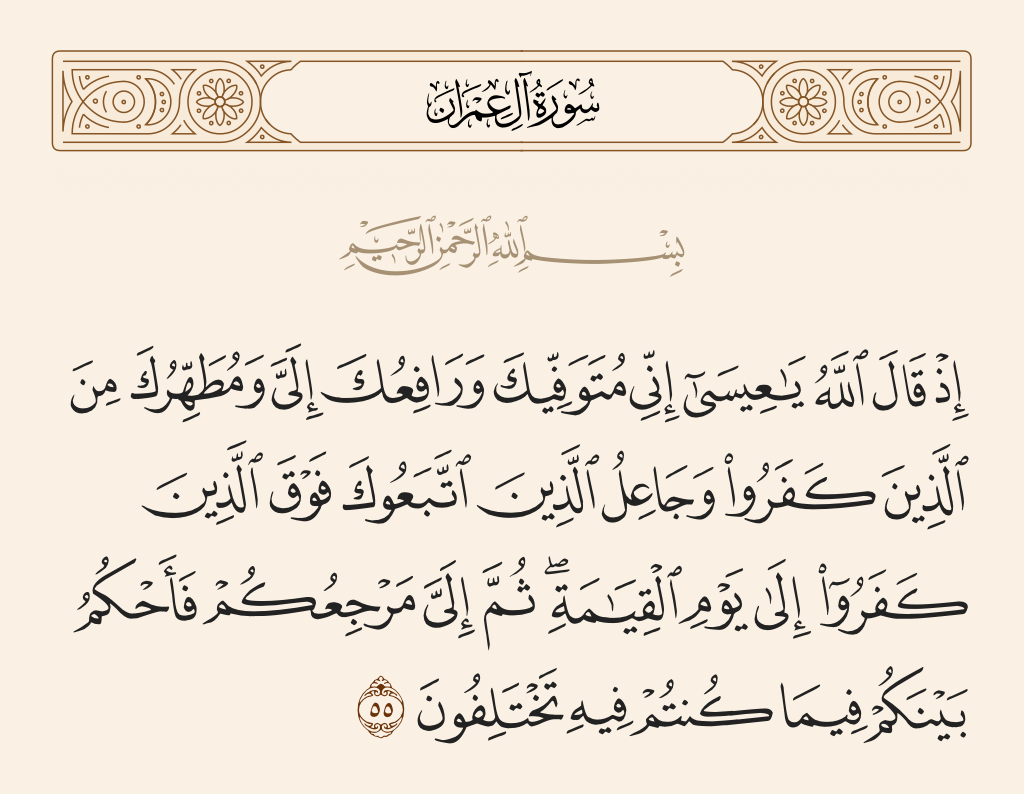 سُورَةُ آلِ عِمْرَانَ
بِسْمِ ٱللَّهِ ٱلرَّحْمَٰنِ ٱلرَّحِيمِ
إِذْ قَالَ ٱللَّهُ يَـٰعِيسَىٰٓ إِنِّى مُتَوَفِّيكَ وَرَافِعُكَ إِلَىَّ وَمُطَهِّرُكَ مِنَ
ٱلَّذِينَ كَفَرُوا۟ وَجَاعِلُ ٱلَّذِينَ ٱتَّبَعُوكَ فَوْقَ ٱلَّذِينَ
كَفَرُوٓا۟ إِلَىٰ يَوْمِ ٱلْقِيَـٰمَةِ ۖ ثُمَّ إِلَىَّ مَرْجِعُكُمْ فَأَحْكُمُ
بَيْنَكُمْ فِيمَا كُنتُمْ فِيهِ تَخْتَلِفُونَ ٥٥